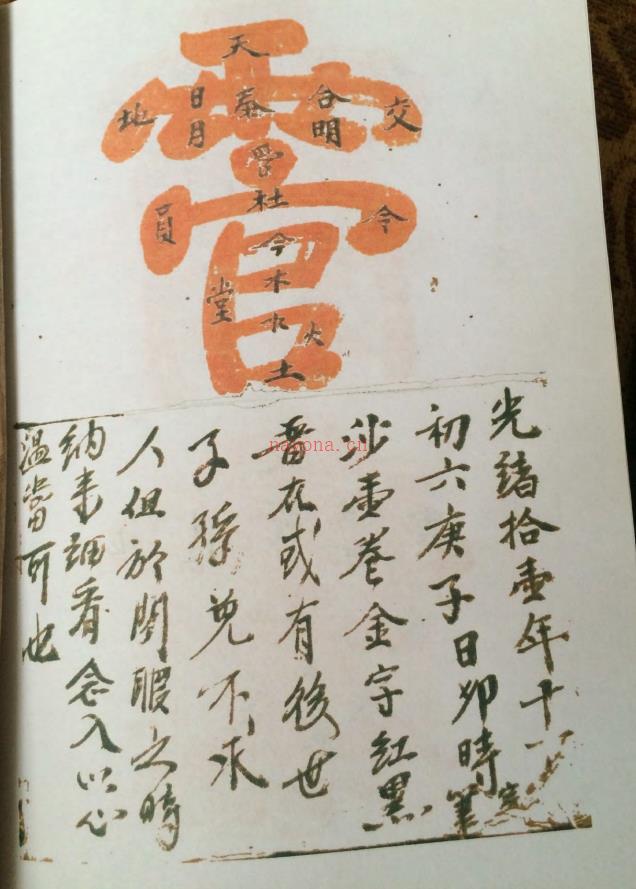 天
交
合明
日月
地
令
員
杜
堂
木
火
土
光緒拾壹年十一
初六庚子日卯時筆完
沙壹卷金字紅黑
在或有後世
子孫免不求
人但於閒暇之時
納来細看念入以心
温當可也
nayona.cn